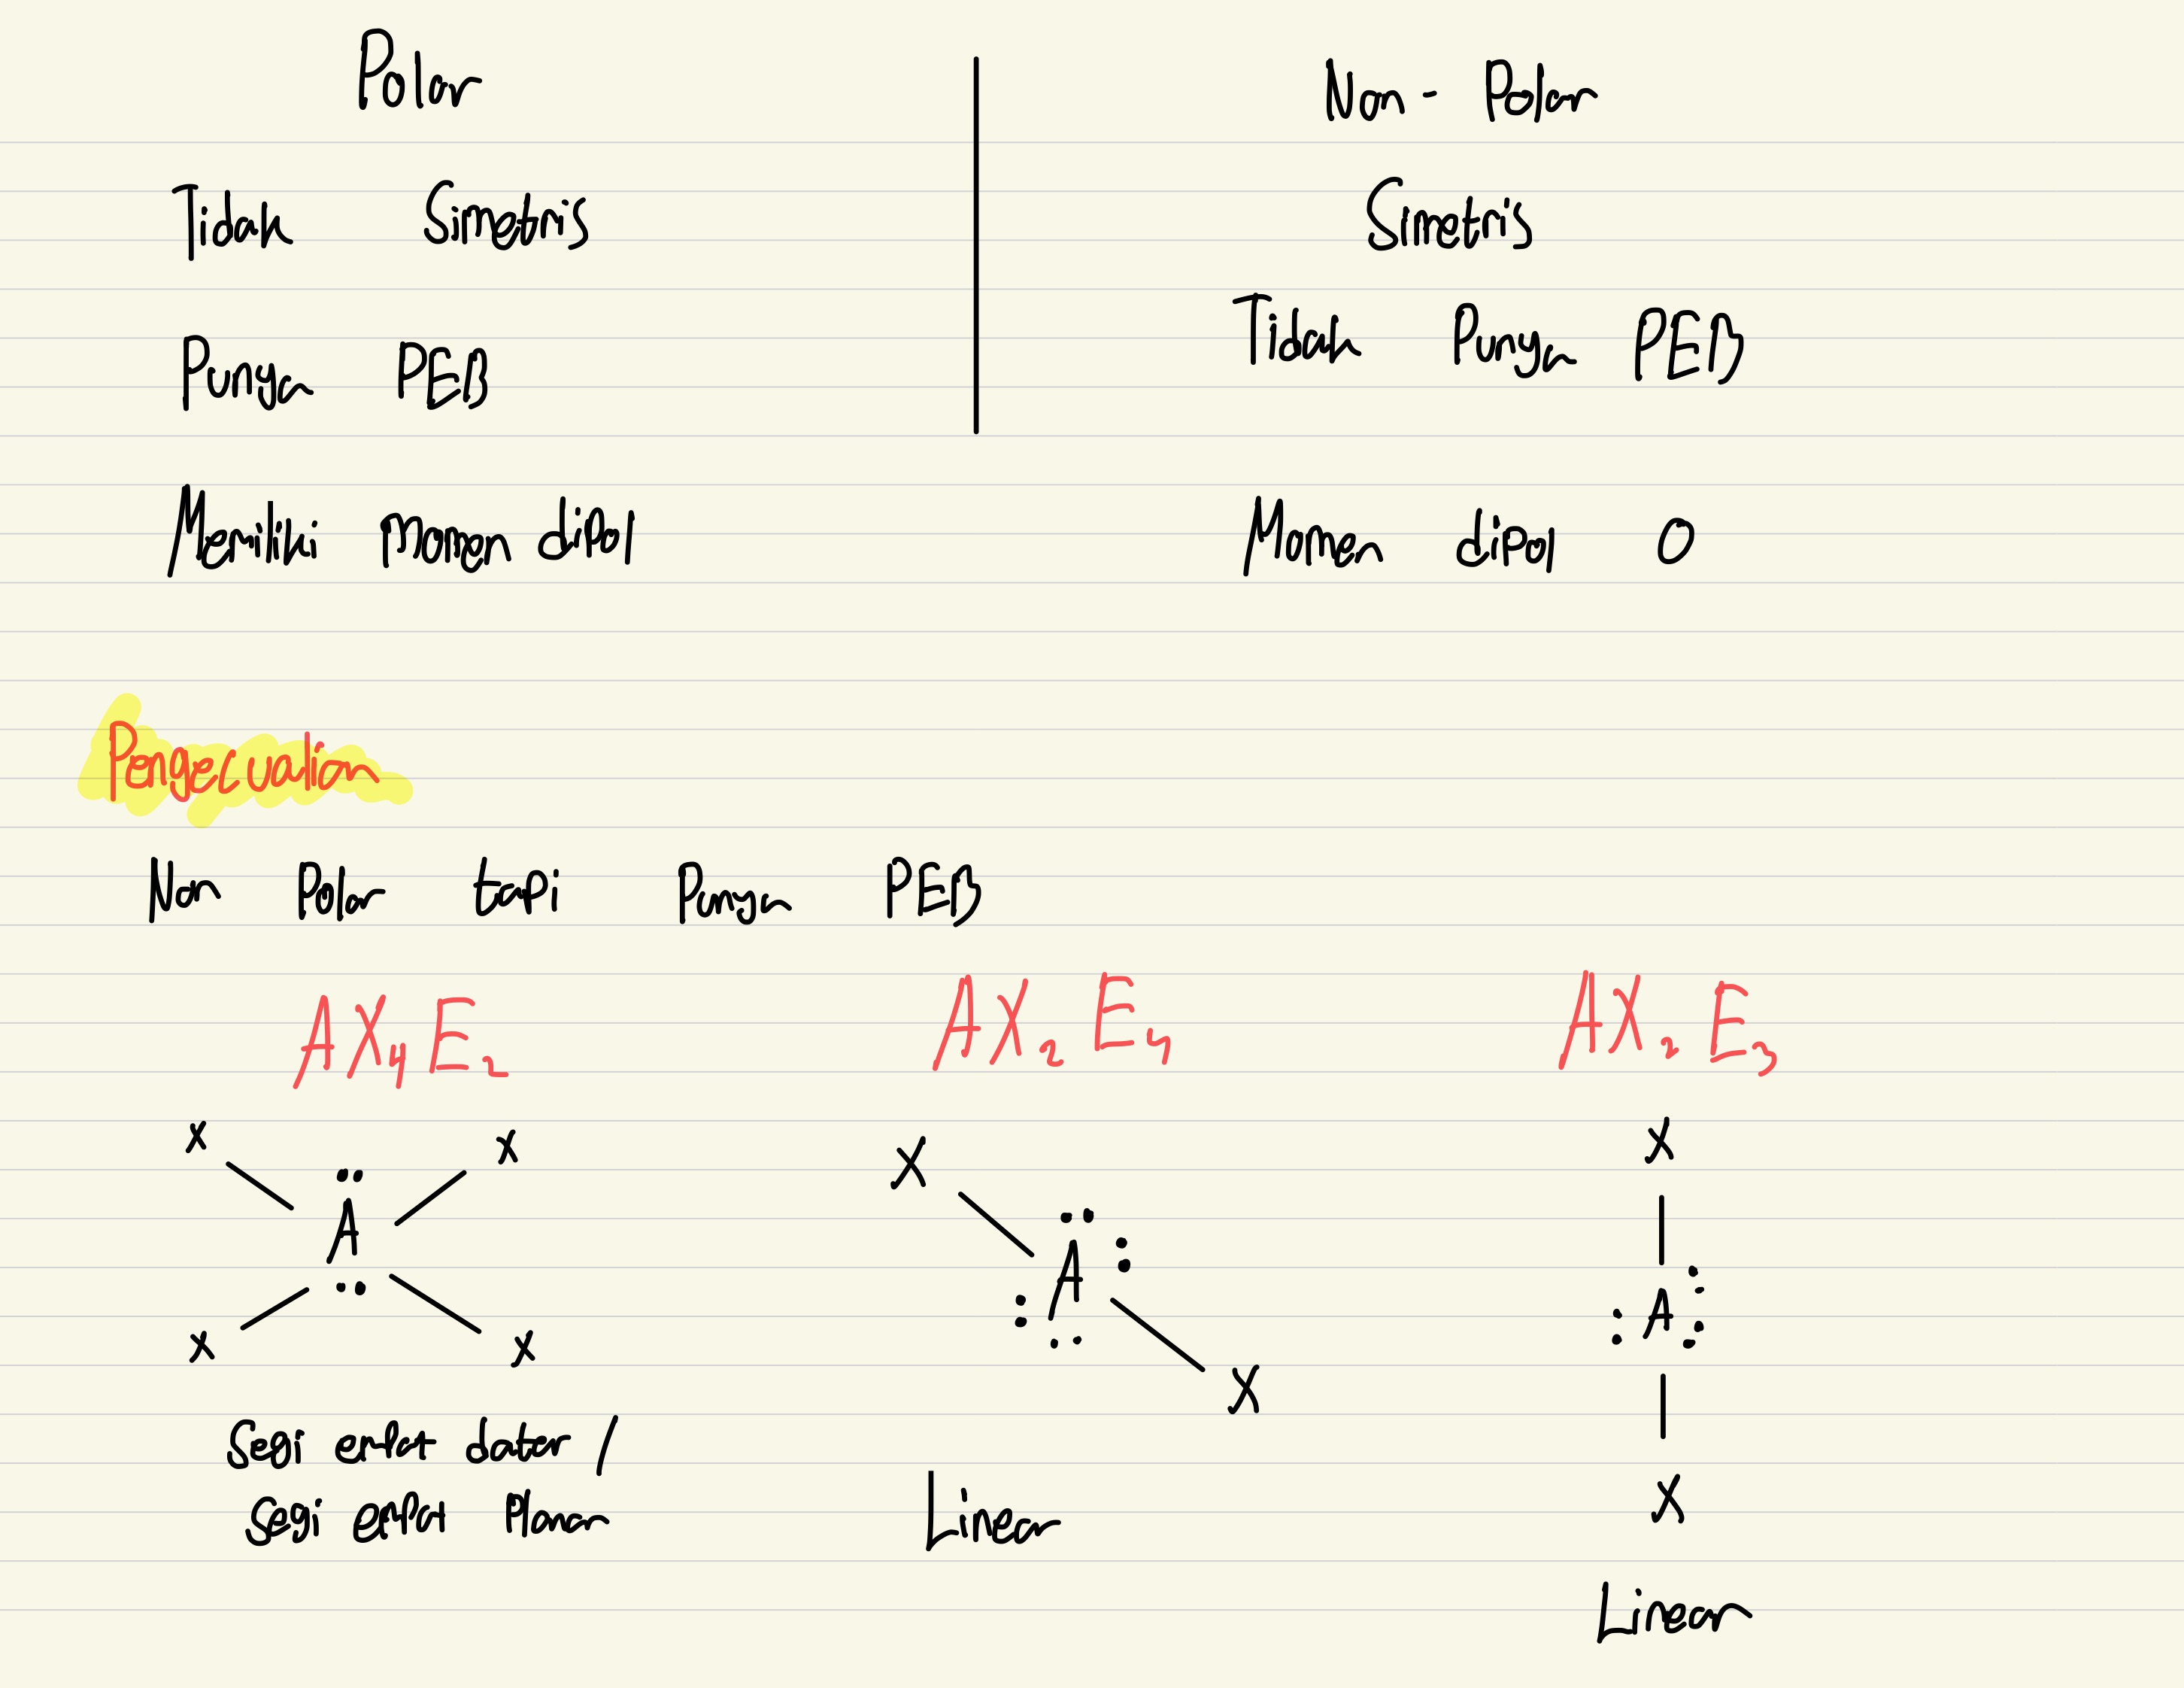 Polar
Non - Polar
Tidak Simetris
Simetris
Punya PEB
Tidak Punya PEB
Memiliki momen dipol
Momen dipol 0
Pengecualian
Non Polar tapi Punya PEB
AX4E2
AX2E4
AX2E3
X X
A
X X
X
A
X
X
A
X
Segi empat datar /
Segi empat Planar
Linear
Linear